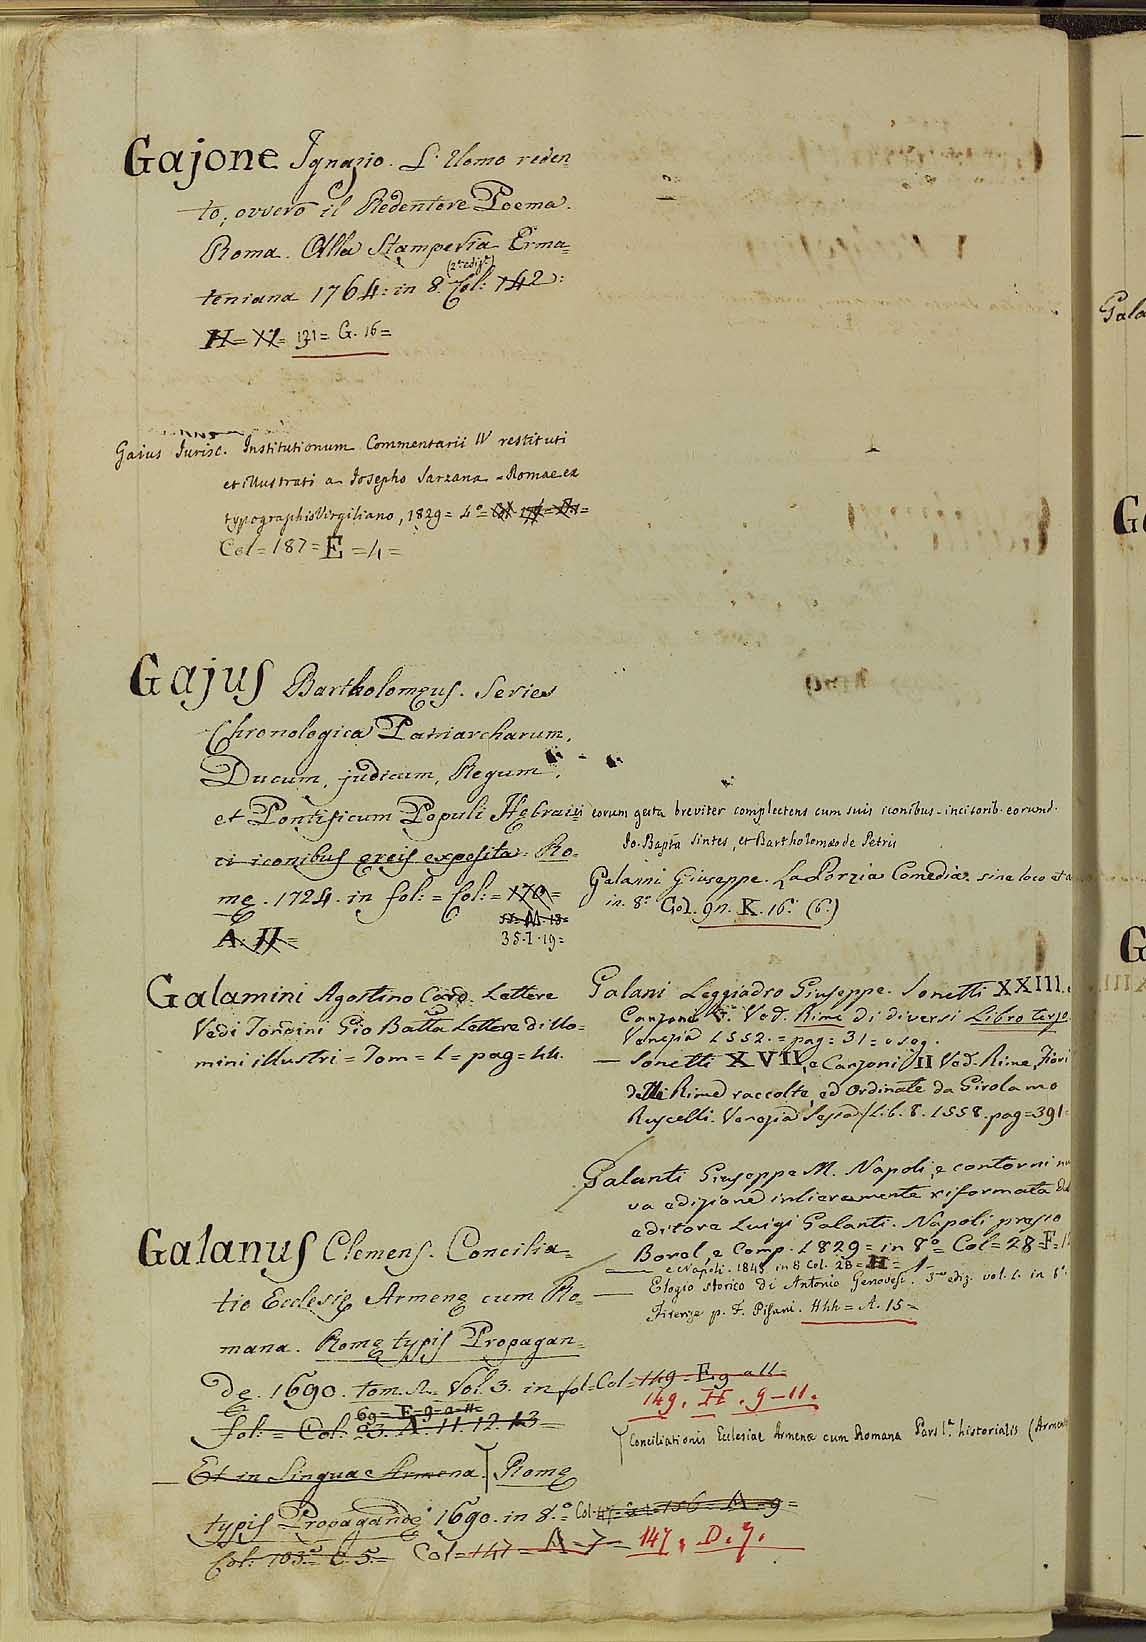 Gajone Ignazio. L'Uomo reden
to, ovvero il Redentore Poema.
Roma. Alla Stamperia Erma=
teniana 1764: in 8. Col: 142:
(2ª ediz.e)
H = XI = 131 = G. 16 =
Gaius Jurisc. Institutionum Commentarii IV restituti
et illustrati a Josepho Sarzana = Romae ex
typographio Virgiliano, 1829 = 4° =
Col = 187 = E = 4 =
Gajus Bartholomęus. Series
Chronologica Patriarcharum,
Ducum, judicum, Regum,
et Pontificum Populi Hebraici eorum gesta breviter complectens cum suis iconibus - incisorib. eorund.
Jo. Bapta Sintes, et Bartholomaeo de Petris
ci iconibus ęreis exposita. Ro=
mę. 1724. in fol: = Col: = 170 =
A. H =
35. I. 19 =
Galanni Giuseppe. La Porzia Comedia. sine loco et a
in 8° Col. 97. K. 16. (6.)
Galamini Agostino Card. Lettere
Vedi Tondini Gio Batta Lettere di Uo=
mini illustri = Tom = 1 = pag = 44.
Galani Leggiadro Giuseppe. Sonetti XXIII. e
Canzone Ved. Rime di diversi Libro terzo
Venezia 1552. = pag = 31 = e seg.
— Sonetti XVII, e Canzoni II Ved. Rime, Fiori
delle Rime raccolte, ed Ordinate da Girolamo
Ruscelli. Venezia Sessa Lib. 8. 1558. pag = 391 =
Galanti Giuseppe M. Napoli, e contorni nu
va edizione intieramente riformata dal
editore Luigi Galanti. Napoli presso
Borel, e Comp. 1829 = in 8° = Col = 28 = F = 1
— e Napoli. 1845 in 8 Col. 28 = H = 1
— Elogio storico di Antonio Genovesi. 3ª ediz. vol. 1. in 8°.
Firenze p. F. Pisani. Hhh = A. 15 =
Galanus Clemens. Concilia=
tio Ecclesię Armenę cum Ro=
mana. Romę typis Propagan=
dę. 1690. tom. 2. Vol. 3. in fol = Col = 149 = E. 9 a 11 =
149. H. 9-11.
69 = E = 9 = a = 11 =
fol: = Col. 23. A. 11. 12. 13 =
Conciliationis Ecclesiae Armenae cum Romana Pars I.a historialis (Armen
— Et in Lingua Armena. Romę
typis Propagandę 1690. in 8.° = Col. 47 = = 156 = A = 9 =
Col: 103 = C. 5 = Col = 147 = A = 7 = 147. D. 7.
Gala